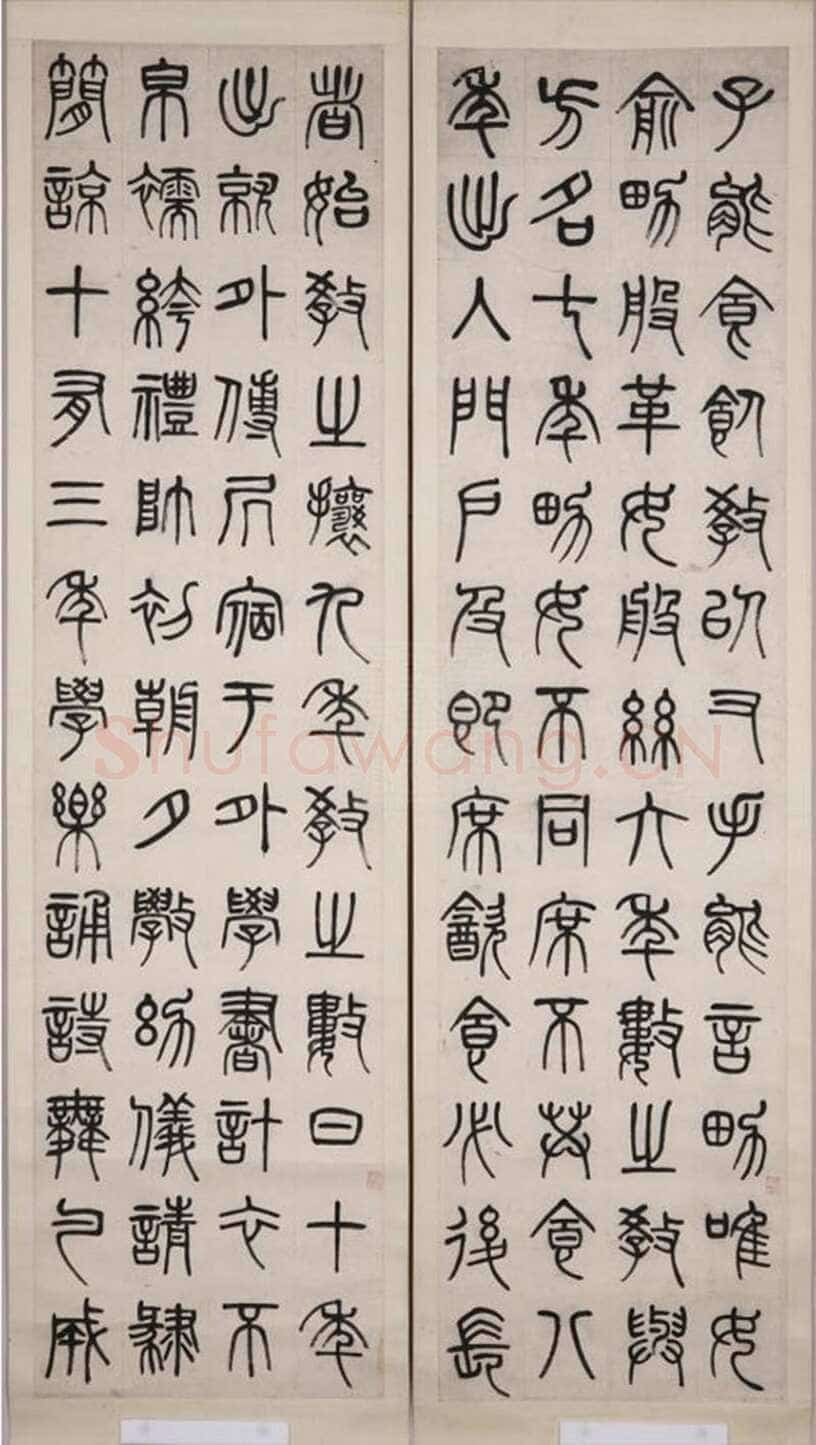 子能食飤教㠯又手能言男唯女
俞男般革女般絲六年數之教與
方名七年男女不同席不共食八
年出入門戶及即席飲食必後長
者始教之攘九年教之數日十年
出就外傅凥宿于外學書計衣不
帛襦絝禮帥初朝夕斆幼儀請肄
簡諒十有三年學樂誦詩舞勺成
Shufawang.CN